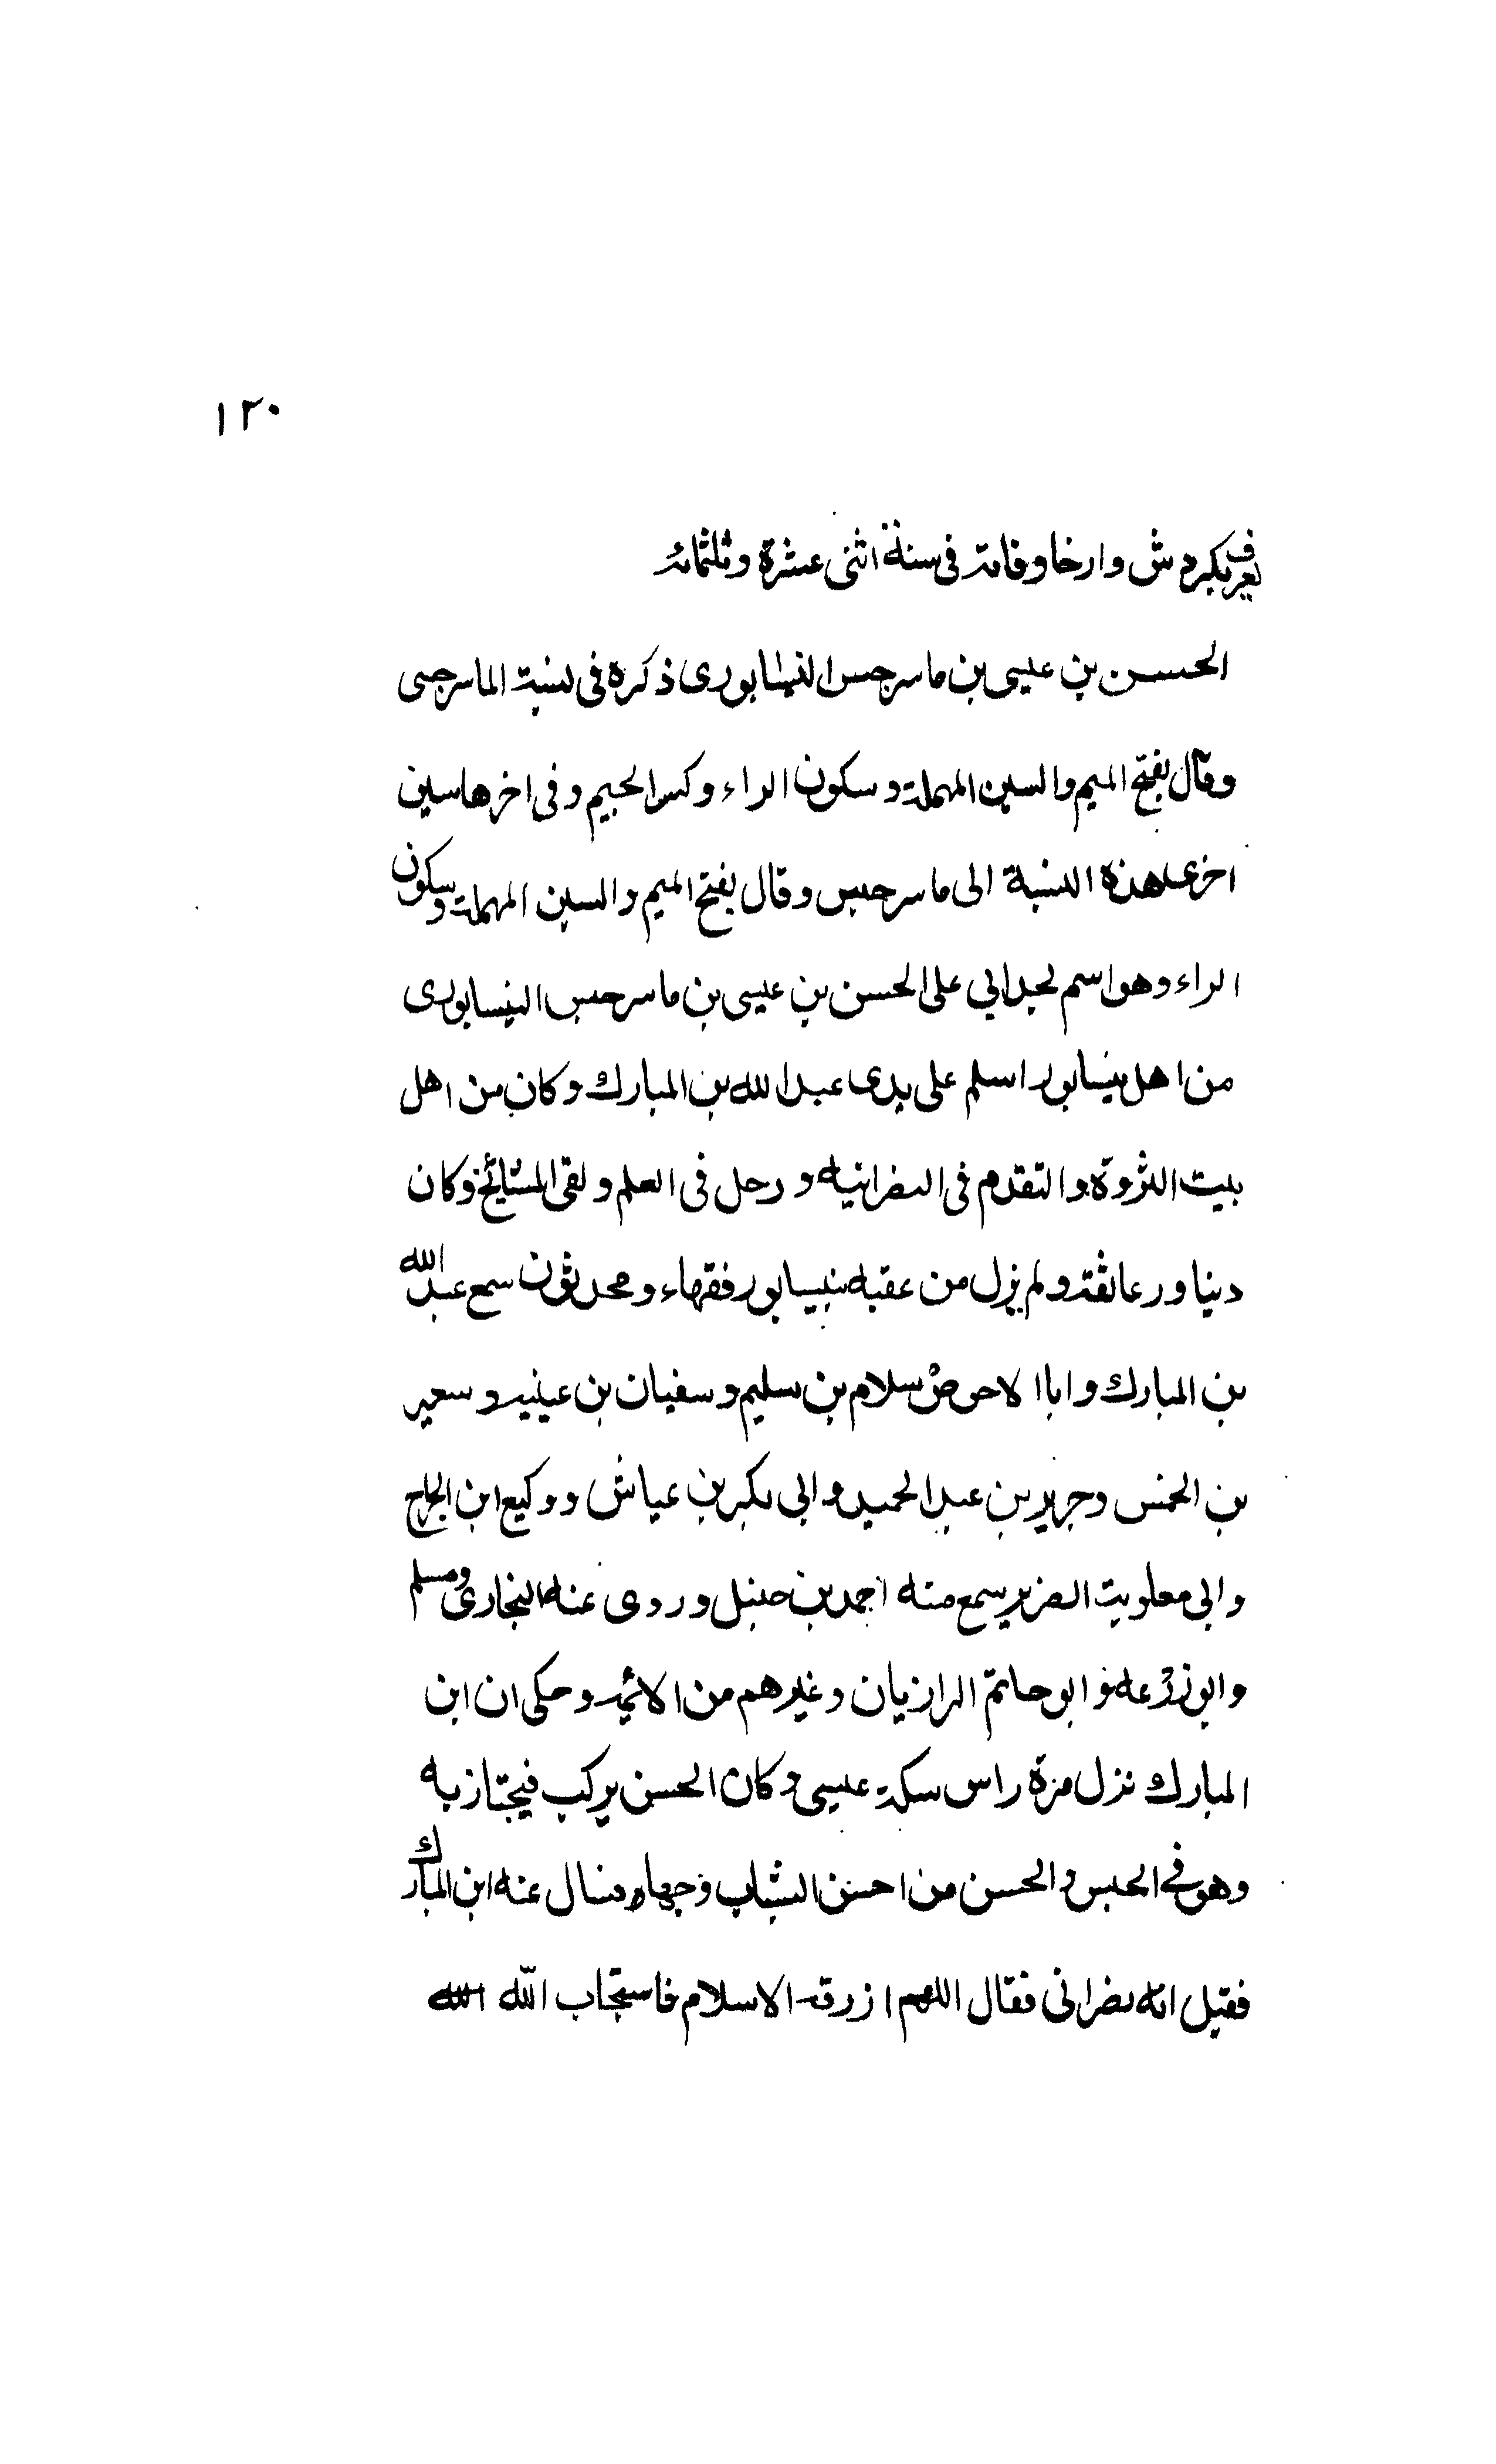 ١٢٠
يعرف بكردش وارخا وفاته فى سنة اثنى عشرة وثلثمائه
الحسن بن عيسى بن ماسرجس النيسابورى ذكره فى نسبة الماسرجسى
وقال بفتح الميم والسين المهملة وسكون الراء وكسر الجيم وفى اخرها سين
اخرى هذه النسبة الى ماسرجس وقال بفتح الميم والسين المهملة وسكون
الراء وهو اسم لجد ابي على الحسن بن عيسى بن ماسرجس النيسابورى
من اهل نيسابور اسلم على يدى عبد الله بن المبارك وكان من اهل
بيت الثروة والتقدم فى النصرانيه ورحل فى العلم ولقى المشائخ وكان
دينا ورعا ثقة ولم يزل من عقبه بنيسابور فقهاء ومحدثون سمع عبد الله
بن المبارك وابا الاحوص سلام بن سليم وسفيان بن عيينه وسعير
بن الخمس وجرير بن عبد الحميد وابى بكر بن عياش ووكيع ابن الجراح
وابى معاوية الضرير سمع منه احمد بن حنبل وروى عنه البخارى ومسلم
وابو زرعه وابو حاتم الرازيان وغيرهم من الائمه وحكى ان ابن
المبارك نزل مرة راس سكة عيسى وكان الحسن يركب فيجتاز به
وهو فى المجلس والحسن من احسن الشباب وجها فسال عنه ابن المبارك
فقيل انه نصرانى فقال اللهم ارزقه الاسلام فاستجاب الله الله